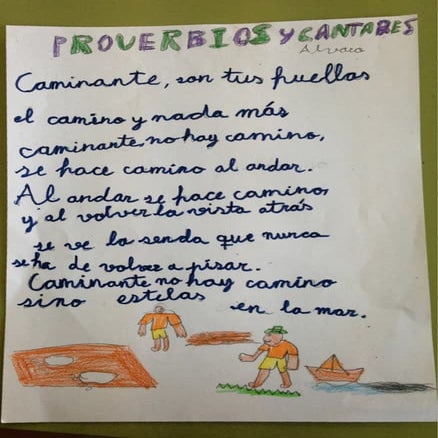 PROVERBIOS Y CANTARES
Alvaro
Caminante, son tus huellas
el camino y nada más
caminante, no hay camino,
se hace camino al andar.
Al andar se hace camino,
y al volver la vista atrás
se ve la senda que nunca
se ha de volver a pisar.
Caminante no hay camino
sino estelas en la mar.